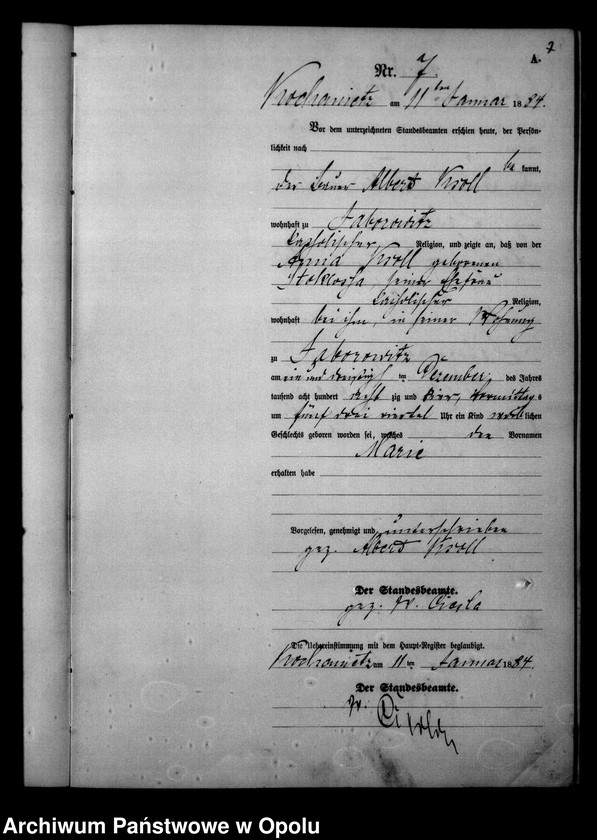 7
A.
Nr. 7
am 11ten Januar 1884.
Vor dem unterzeichneten Standesbeamten erschien heute, der Persön-
lichkeit nach
be kannt,
der Bauer Albert Kroll
wohnhaft zu Jaborowitz
katholischer Religion, und zeigte an, daß von der
Kroll geborenen
Stoklossa, seiner Ehefrau
katholischer Religion,
wohnhaft bei ihm, in seiner Wohnung
zu Jaborowitz
am ein und dreißigsten Dezember, des Jahres
tausend acht hundert acht zig und vormittags
um fünf drei viertel Uhr ein Kind weiblichen
Geschlechts geboren worden sei, welches den Vornamen
Marie
erhalten habe
Vorgelesen, genehmigt und unterschrieben
gez. Albert Kroll
Der Standesbeamte.
gez. Fr. Ciesla
Die Uebereinstimmung mit dem Haupt-Register beglaubigt.
am 11ten Januar 1884.
Der Standesbeamte.
Fr.
Archiwum Państwowe w Opolu